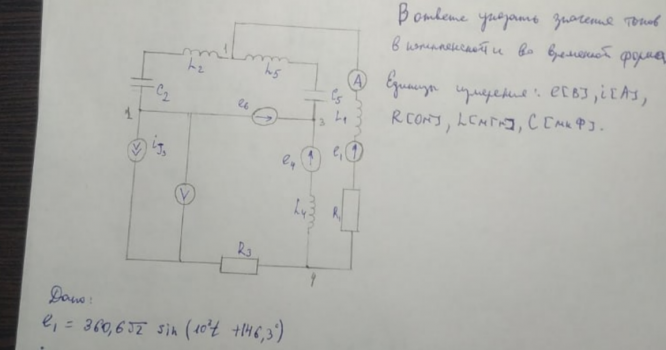 В ответе указать значения токов
в комплексной и во временной форме
Единицы измерения: e[В], i[А],
R[Ом], L[мГн], C[мкФ].
L2
1
L5
A
C2
C5
L1
2
e6
3
e1
iJ3
e4
V
L4
R1
R3
4
Дано:
e1 = 360,6√2 sin(10³t + 146,3°)